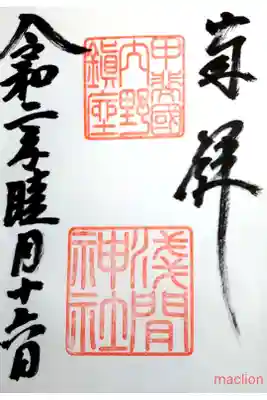 奉拜
甲斐國
内野
鎮座
淺間
神社
令和二年睦月十六日
maclion